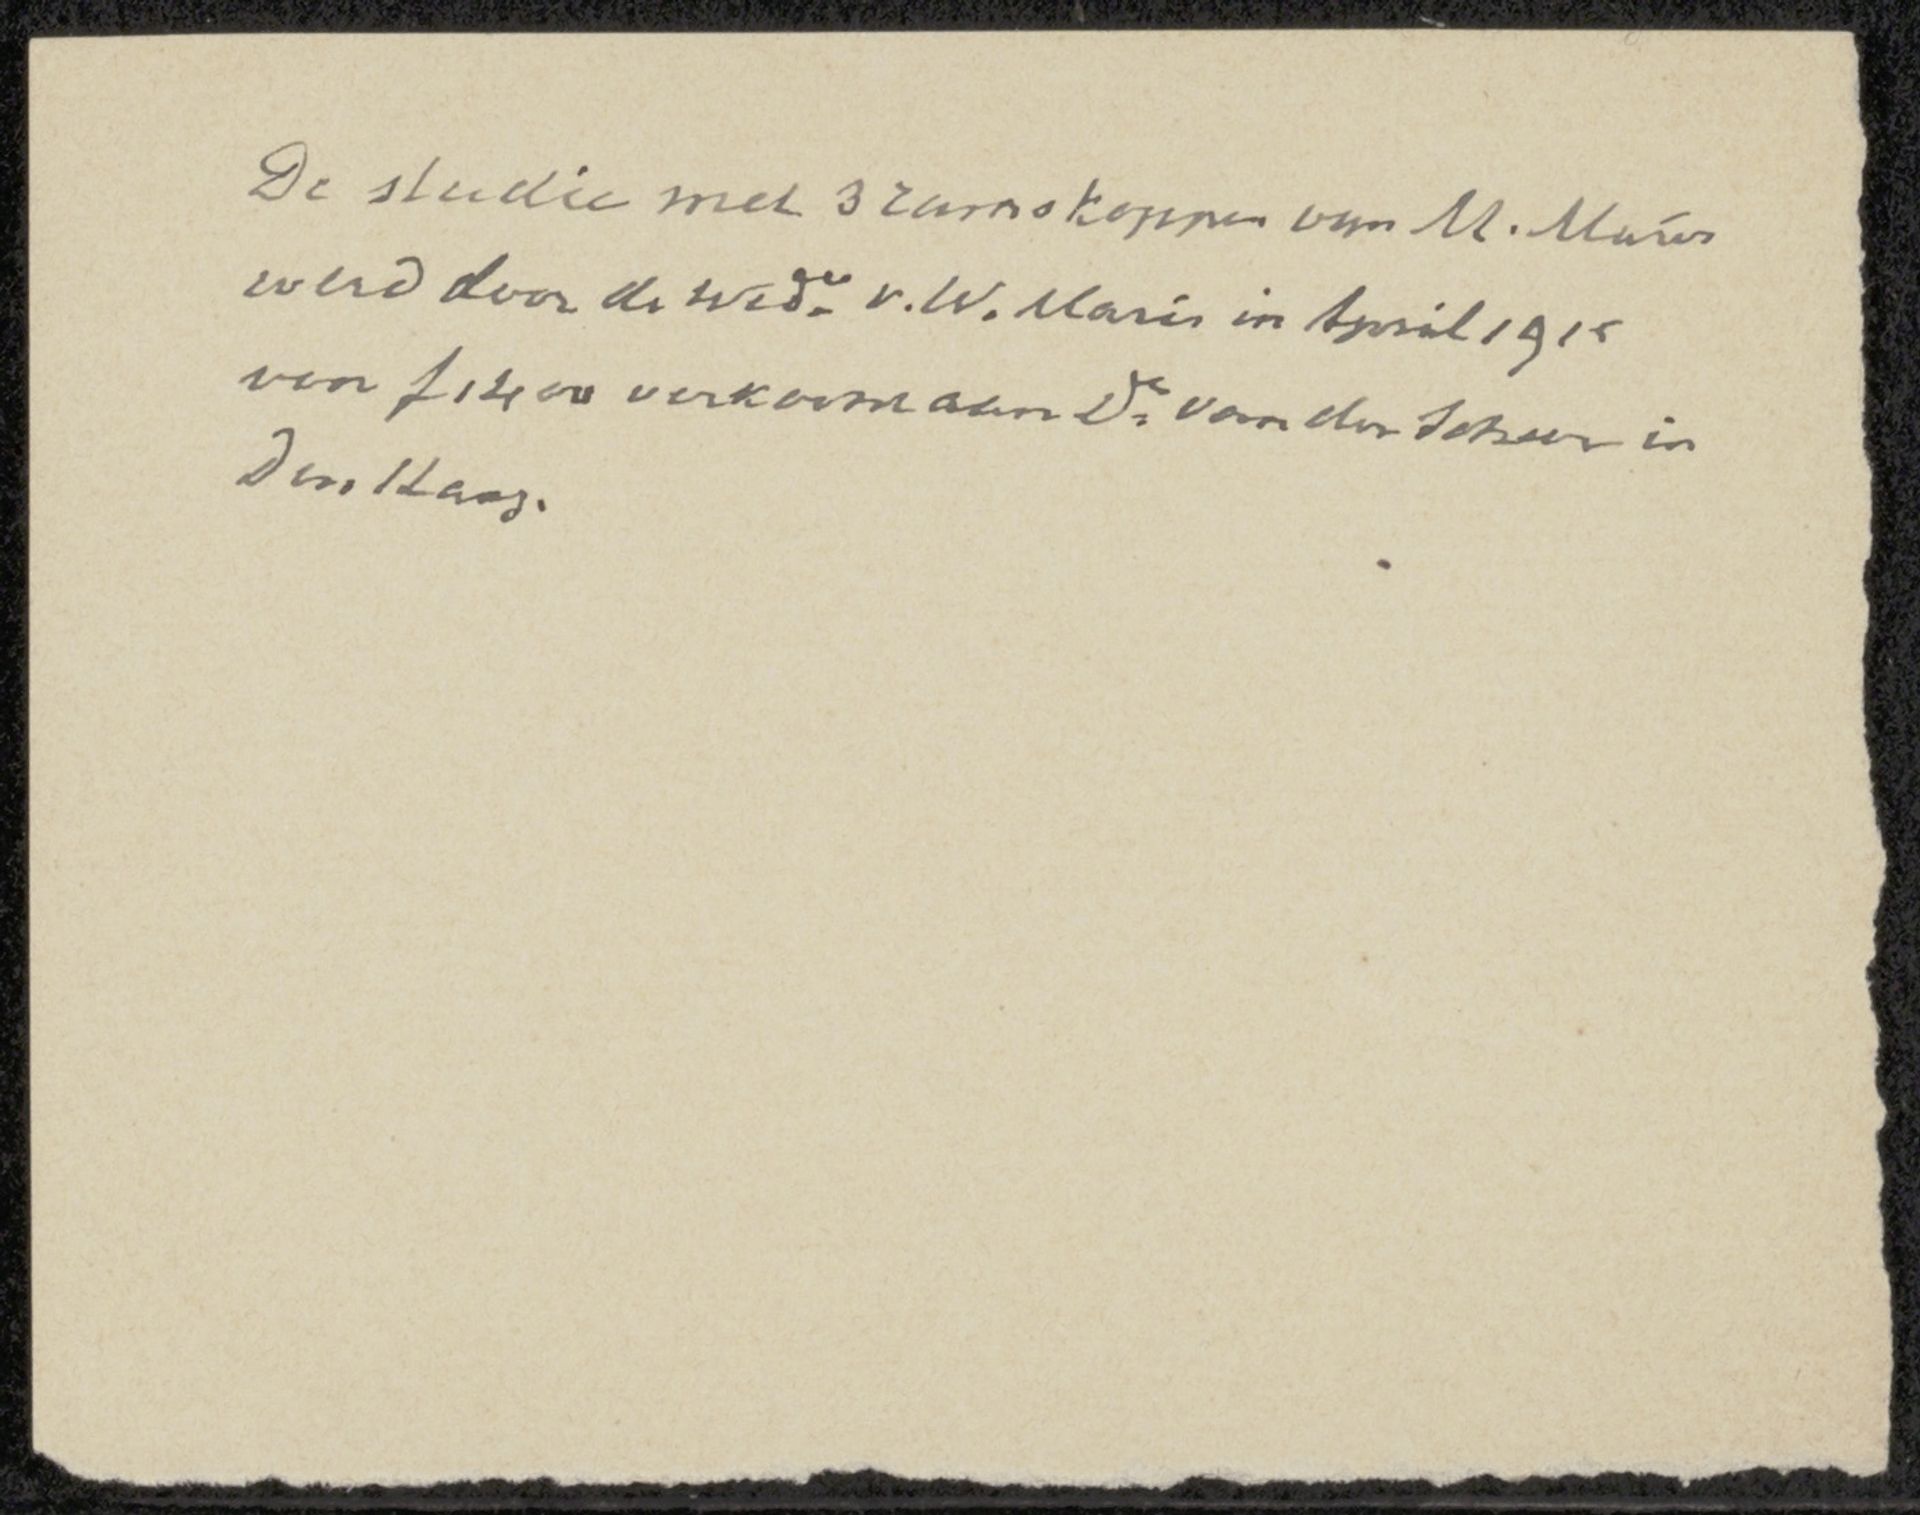 De studie met 3 ramskoppen van M. Maris
werd door de Wedᵘᵉ v. W. Maris in April 1915
voor verkocht aan Dʳ van der Scheer in
Den Haag.